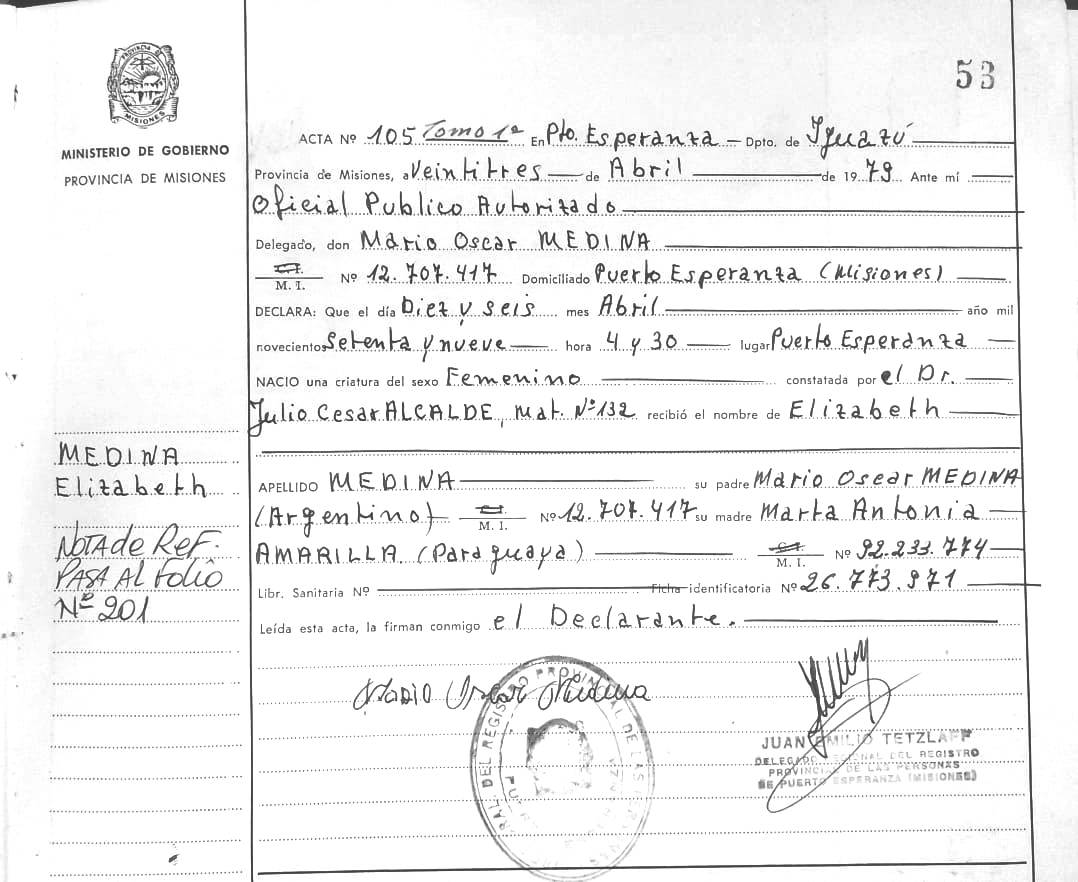 53
PROVINCIA DE
MISIONES
MINISTERIO DE GOBIERNO
PROVINCIA DE MISIONES
ACTA Nº 105 Tomo 1º En Pto. Esperanza — Dpto. de Iguazú
Provincia de Misiones, a Veintitres de Abril de 1979 Ante mí
Oficial Publico Autorizado
Delegado, don Mario Oscar MEDINA
C.I.
M. I. Nº 12.707.417 Domiciliado Puerto Esperanza (Misiones)
DECLARA: Que el día Diez y seis mes Abril año mil
novecientos Setenta y nueve hora 4 y 30 lugar Puerto Esperanza
NACIO una criatura del sexo Femenino constatada por el Dr.
Julio Cesar ALCALDE, Mat. Nº 132 recibió el nombre de Elizabeth
MEDINA
Elizabeth
NOTA de REF.
PASA AL FOLIO
Nº 201
APELLIDO MEDINA su padre Mario Oscar MEDINA
(Argentino) C.I.
M. I. Nº 12.707.417 su madre Marta Antonia
AMARILLA (Paraguaya) C.I.
M. I. Nº 92.233.774
Libr. Sanitaria Nº Ficha identificatoria Nº 26.773.971
Leída esta acta, la firman conmigo el Declarante.
Mario Oscar Medina
DEL REGISTRO PROVINCIAL DE LAS
JUAN EMILIO TETZLAFF
DELEGADO DEL REGISTRO
PROVINCIAL DE LAS PERSONAS
DE PUERTO ESPERANZA (MISIONES)